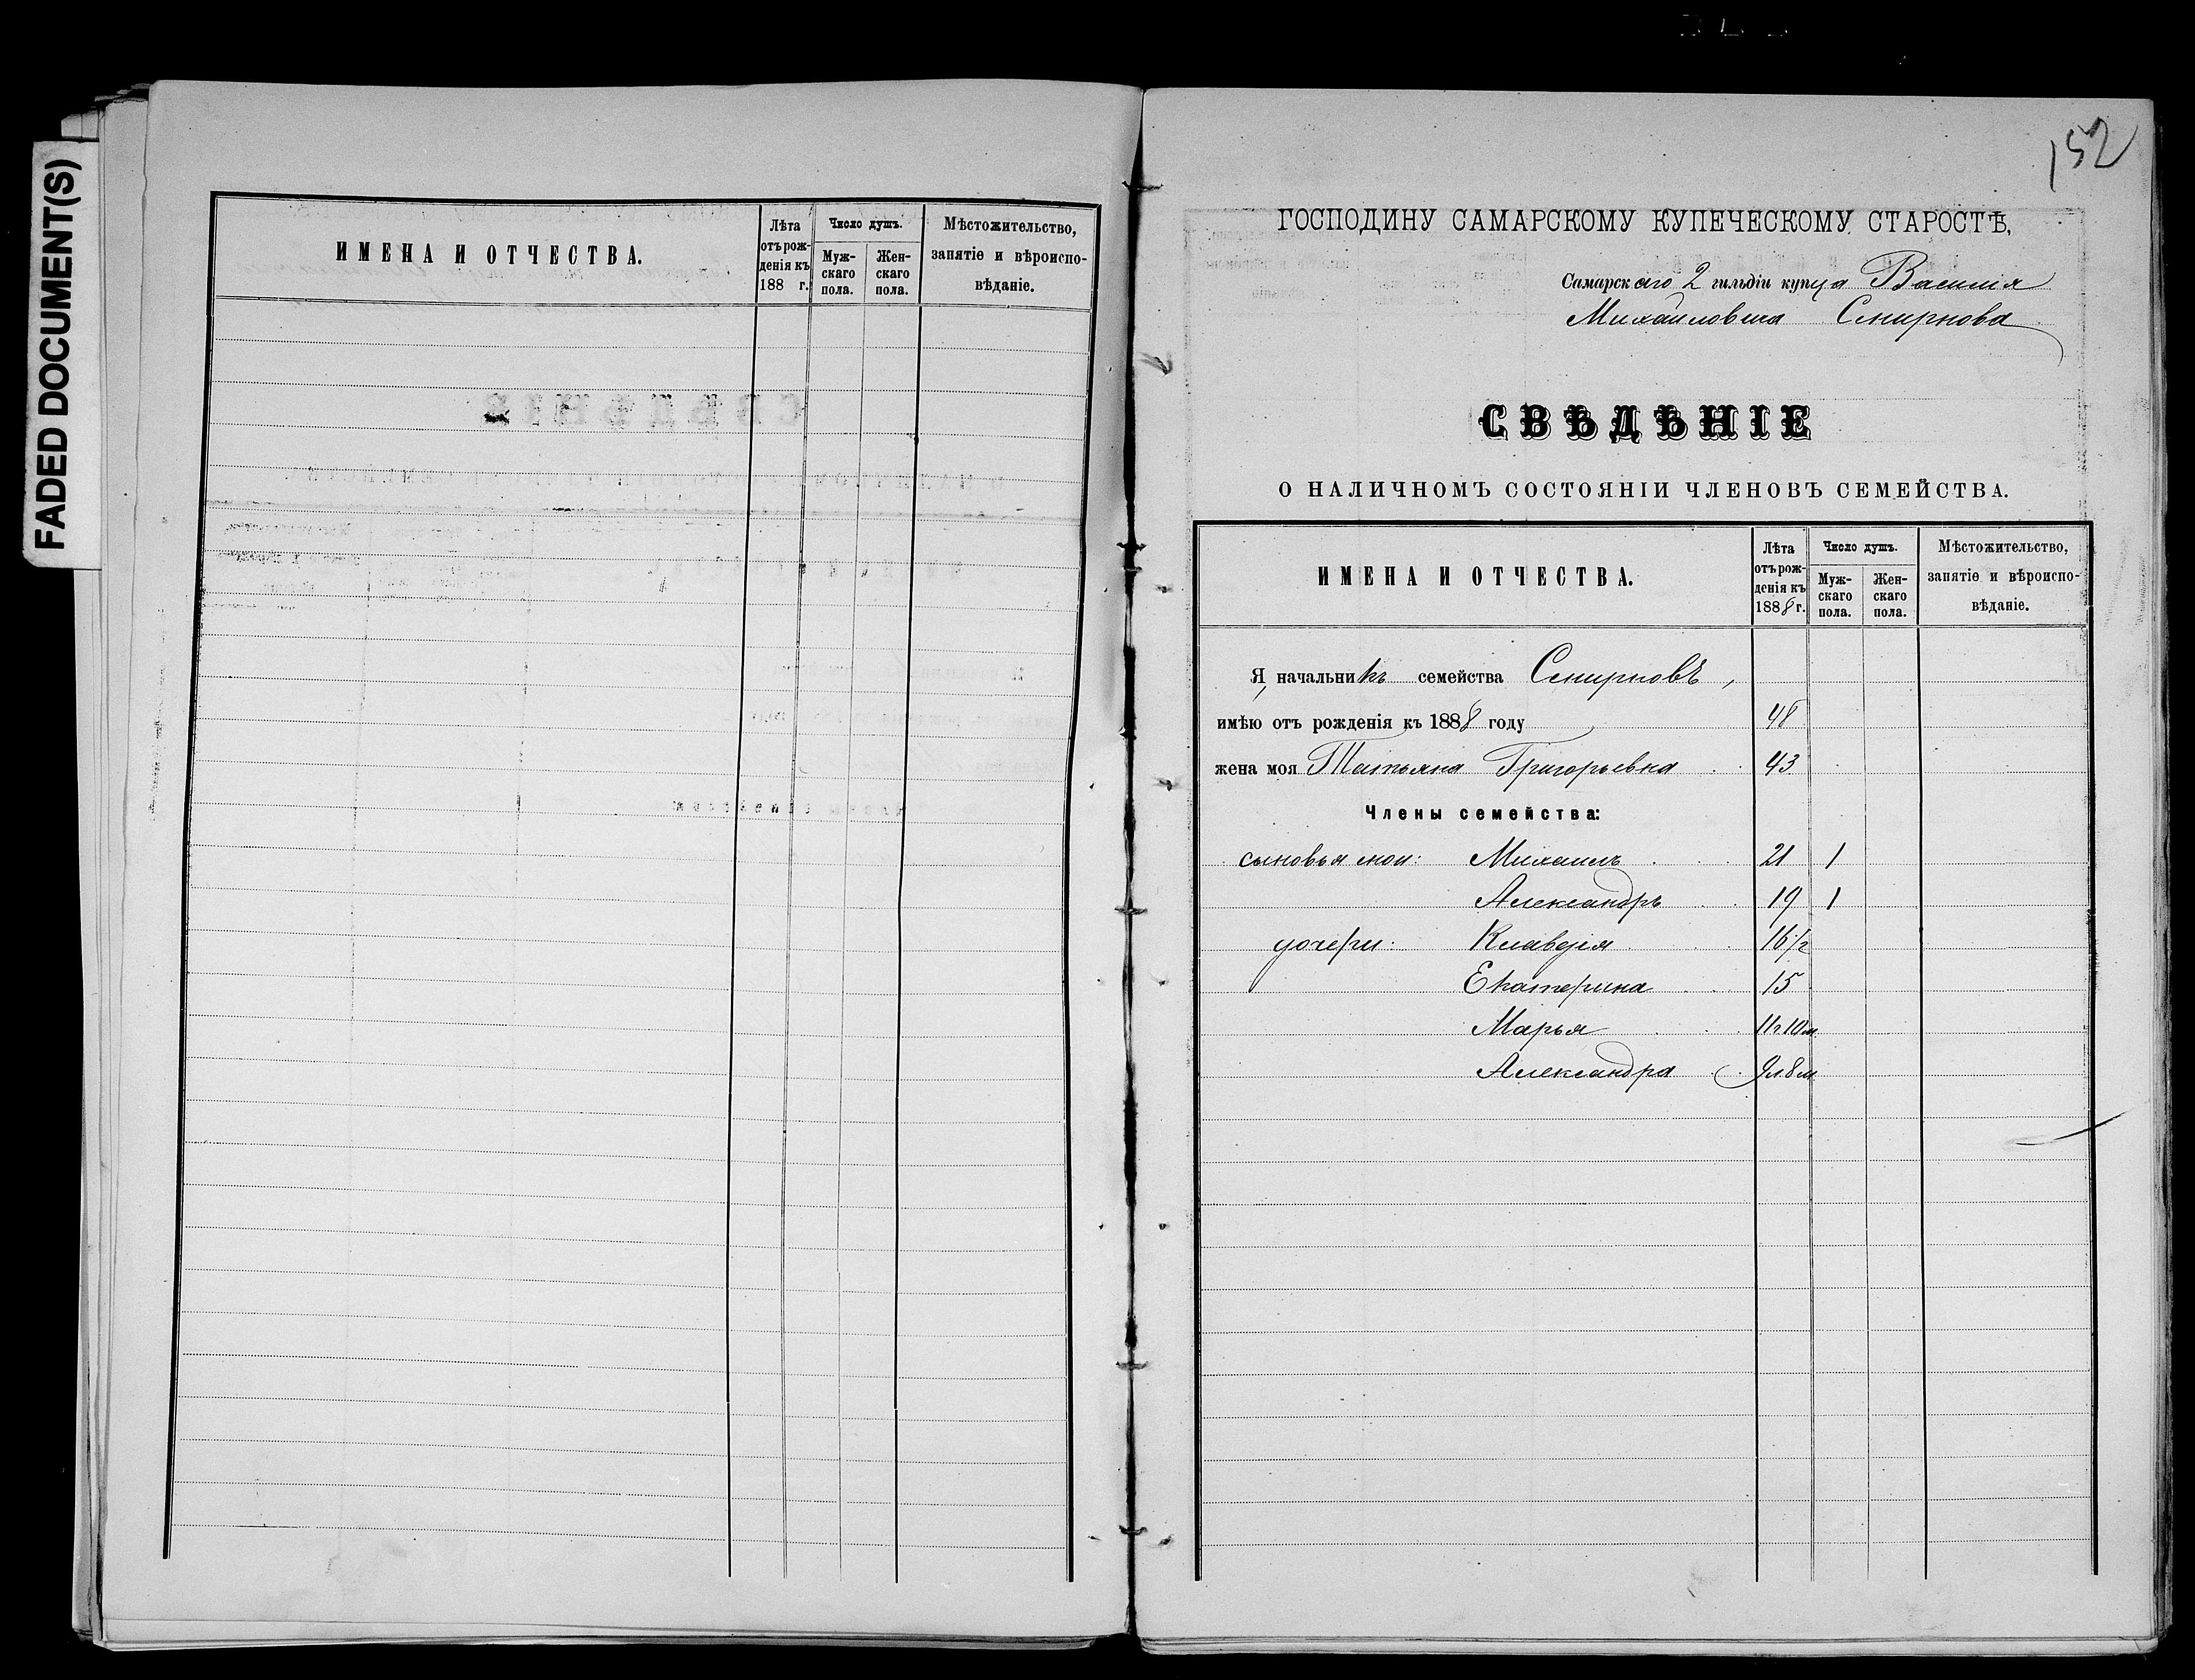 FADED DOCUMENT(S)
ИМЕНА И ОТЧЕСТВА.
Лѣта отъ рожденія къ 188 г.
Число душъ.
Мужскаго пола.
Женскаго пола.
Мѣстожительство, занятіе и вѣроисповѣданіе.
152
ГОСПОДИНУ САМАРСКОМУ КУПЕЧЕСКОМУ СТАРОСТѢ,
Самарскаго 2 гильдіи купца Василія
Михайловича Смирнова
СВѢДѢНІЕ
О НАЛИЧНОМЪ СОСТОЯНІИ ЧЛЕНОВЪ СЕМЕЙСТВА.
ИМЕНА И ОТЧЕСТВА.
Лѣта отъ рожденія къ 1888 г.
Число душъ.
Мужскаго пола.
Женскаго пола.
Мѣстожительство, занятіе и вѣроисповѣданіе.
Я, начальникъ семейства Смирновъ,
имѣю отъ рожденія къ 1888 году 48
жена моя Татьяна Григорьевна 43
Члены семейства:
сыновья мои: Михаилъ 21 1
Александръ 19 1
дочери: Клавдія 16 1/2
Екатерина 15
Марья 11г 10м
Александра 9л 8м